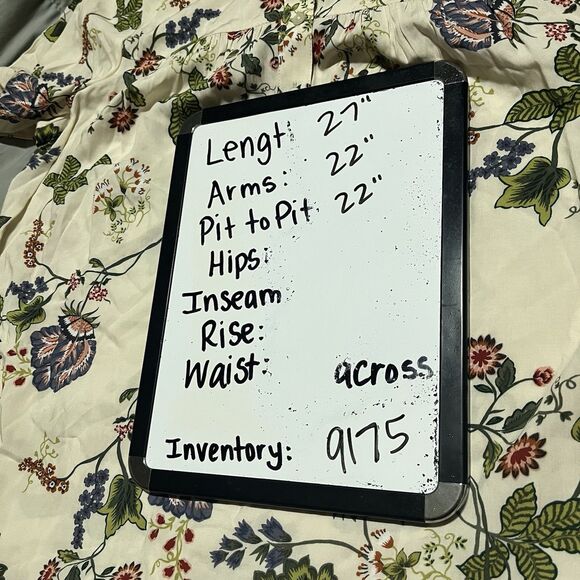 Lengt: 27"
Arms: 22"
Pit to Pit 22"
Hips:
Inseam
Rise:
Waist: across
Inventory: 9175